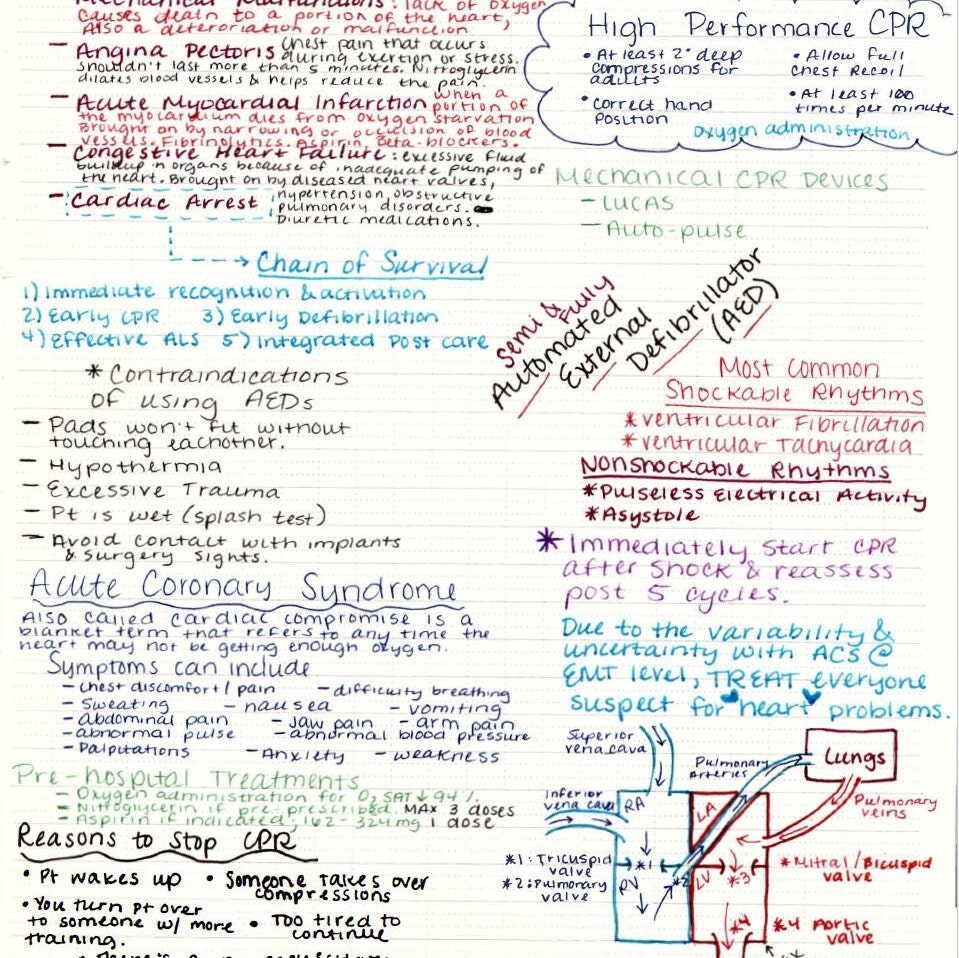 Mechanical Malfunctions: lack of oxygen
causes death to a portion of the heart,
Also a deterioration or malfunction
- Angina Pectoris chest pain that occurs
during exertion or stress.
Shouldn't last more than 5 minutes. Nitroglycerin
dilates blood vessels & helps reduce the pain.
- Acute Myocardial Infarction when a
portion of
the myocardium dies from oxygen starvation
Brought on by narrowing or occulsion of blood
vessels. Fibrinolytics. Aspirin, Beta-blockers.
- Congestive Heart Failure: excessive fluid
buildup n organs because of inadequate pumping of
the heart. Brought on by diseased heart valves,
hypertension, obstructive
pulmonary disorders.
Diuretic medications.
- Cardiac Arrest
Chain of Survival
1) Immediate recognition & activation
2) Early CPR 3) Early Defibrillation
4) Effective ALS 5) Integrated Post care
* Contraindications
of using AEDs
- Pads won't fit without
touching eachother.
- Hypothermia
- Excessive Trauma
- Pt is wet (splash test)
- Avoid contact with implants
& surgery sights.
Acute Coronary Syndrome
Also called cardiac compromise is a
blanket term that refers to any time the
heart may not be getting enough oxygen.
Symptoms can include
- chest discomfort/pain - difficulty breathing
- Sweating - nausea - vomiting
- abdominal pain - Jaw pain - arm pain
- abnormal pulse - abnormal blood pressure
- Palpitations - Anxiety - weakness
Pre-hospital Treatments
- Oxygen administration for O2 SAT ↓ 94%
- Nitroglycerin if pre-prescribed. MAX 3 doses
- Aspirin if indicated, 162-324 mg 1 dose
Reasons to Stop CPR
• Pt wakes up • Someone takes over
compressions
• You turn pt over
to someone w/ more
training.
• Too tired to
continue
High Performance CPR
• At least 2" deep
compressions for
adults
• Allow full
chest Recoil
• Correct hand
Position
• At least 100
times per minute
Oxygen administration
Mechanical CPR Devices
- LUCAS
- Auto-pulse
Semi & Fully
Automated
External
Defibrillator
(AED)
Most Common
Shockable Rhythms
* Ventricular Fibrillation
* Ventricular Tachycardia
Nonshockable Rhythms
* Pulseless Electrical Activity
* Asystole
* Immediately Start CPR
after Shock & reassess
post 5 cycles.
Due to the variability &
uncertainty with ACS @
EMT level, TREAT everyone
suspect for heart problems.
Superior
vena cava
Pulmonary
Arteries
Lungs
Inferior
vena cava
RA
LA
Pulmonary
veins
*1: Tricuspid
valve
*2: Pulmonary
valve
*1
RV
*2
LV
*3
* Mitral/Bicuspid
valve
*4
*4 Aortic
valve